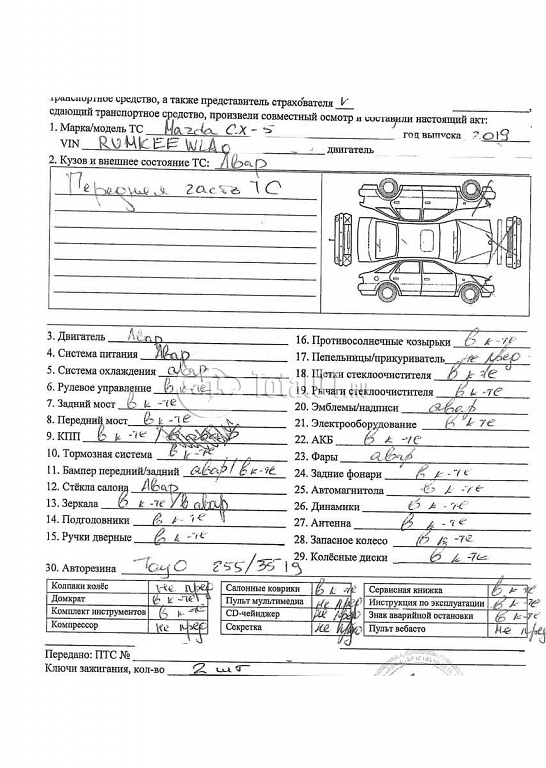 транспортное средство, а также представитель страхователя V
сдающий транспортное средство, произвели совместный осмотр и составили настоящий акт:
1. Марка/модель ТС Mazda CX-5 год выпуска 2019
VIN RUMKEEWLA0 двигатель
2. Кузов и внешнее состояние ТС: Авар
Передняя часть ТС
3. Двигатель Авар
4. Система питания Авар
5. Система охлаждения авар
6. Рулевое управление в к-те
7. Задний мост в к-те
8. Передний мост в к-те
9. КПП в к-те /
10. Тормозная система в к-те
11. Бампер передний/задний авар/в к-те
12. Стёкла салона Авар
13. Зеркала в к-те / авар
14. Подголовники в к-те
15. Ручки дверные в к-те
16. Противосолнечные козырьки в к-те
17. Пепельницы/прикуриватель не пред
18. Щетки стеклоочистителя в к-те
19. Рычаги стеклоочистителя в к-те
20. Эмблемы/надписи авар
21. Электрооборудование в к-те
22. АКБ в к-те
23. Фары авар
24. Задние фонари в к-те
25. Автомагнитола в к-те
26. Динамики в к-те
27. Антенна в к-те
28. Запасное колесо в к-те
29. Колёсные диски в к-те
30. Авторезина Toyo 255/35 19
Колпаки колёс не пред Салонные коврики в к-те Сервисная книжка в к-те
Домкрат в к-те Пульт мультимедиа не пред Инструкция по эксплуатации в к-те
Комплект инструментов в к-те CD-чейнджер не пред Знак аварийной остановки в к-те
Компрессор не пред Секретка не пред Пульт вебасто не пред
Передано: ПТС №
Ключи зажигания, кол-во 2 шт